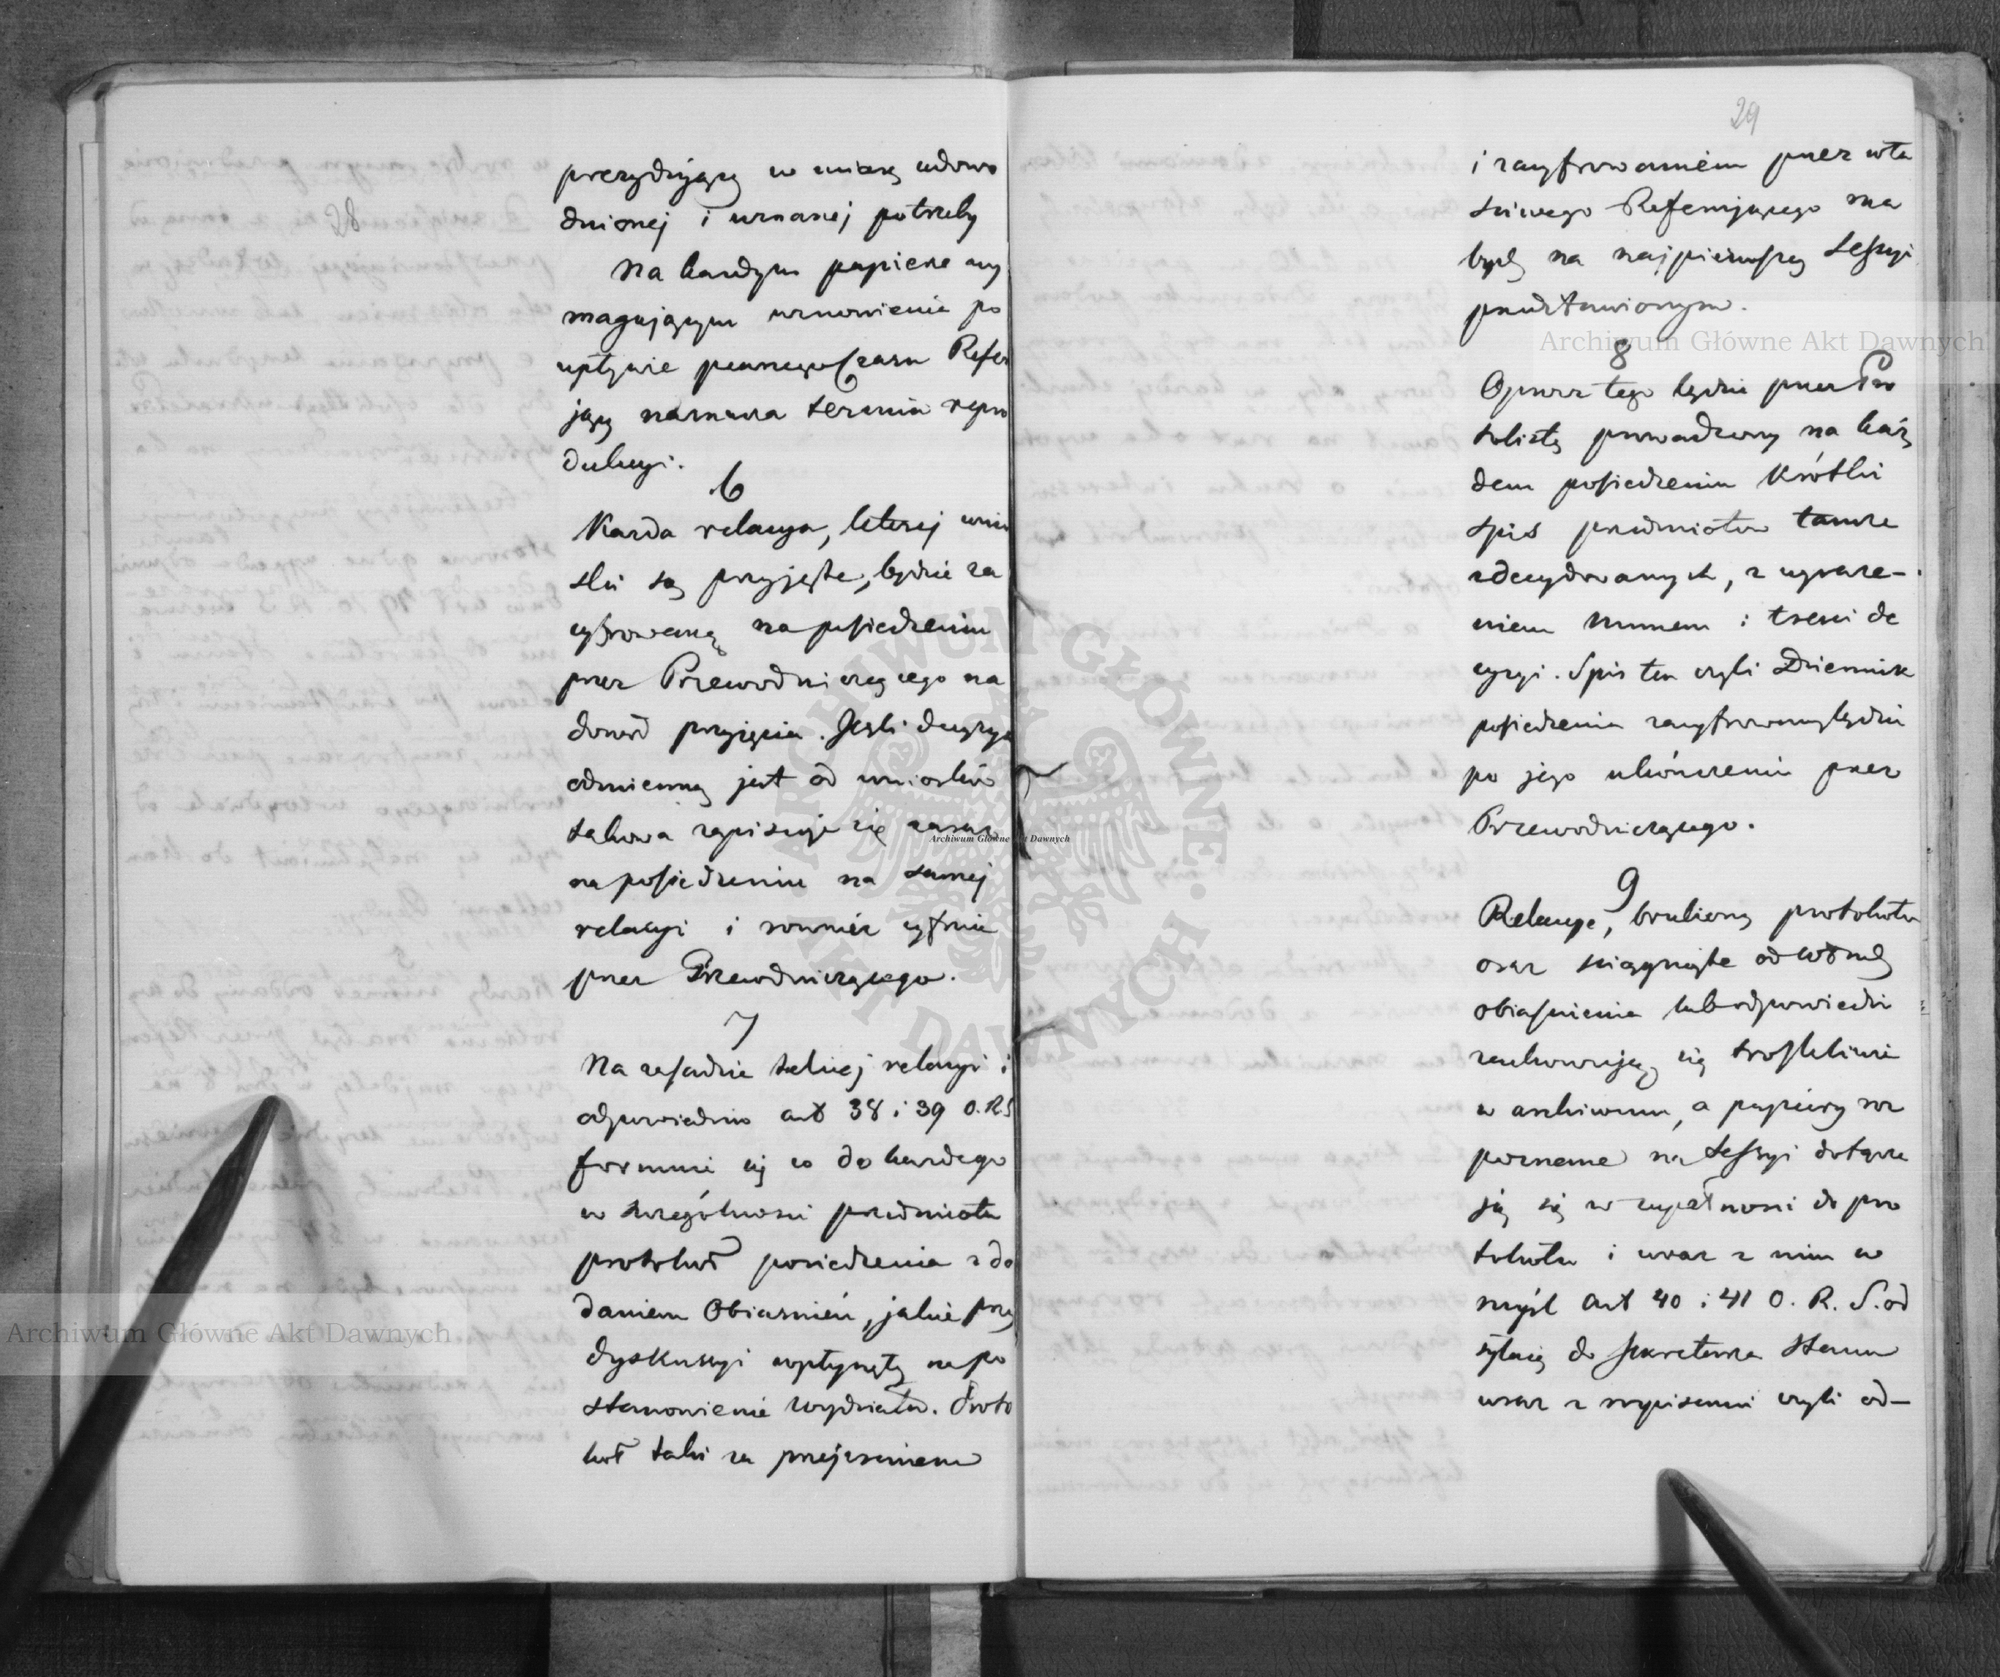 prezydujący w miarę udowo
dnionej i uznanej potrzeby
Na każdym papierze wy
magającym wznowienia po
upływie pewnego Czasu Refer
jący naznacza termin repro
dukcyi.
6
Każda relacya, której wnio
ski są przyjęte, będzie za
cyfrowaną na posiedzeniu
przez Przewodniczącego na
dowód przyjęcia. Jeżli decyzya
odmienną jest od wniosków
takowa zapisuje się zaraz
na posiedzeniu na samej
relacyi i rownież cyfruje
przez Przewodniczącego.
7
Na zasadzie takiej relacyi i
odpowiednio art 38 i 39 O.R.S
formuie się co do każdego
w szczególnosci przedmiotu
protokuł posiedzenia z do
daniem Obiasnień, jakie przy
dyskussyi wpłynęły na po
stanowienie wydziału. Proto
kuł taki za przejrzeniem
29
i zacyfrowaniem przez wła
sciwego Referującego ma
bydź na najpierwszej Sessyi
przedstawionym.
8
Oprocz tego będzie przez Pro
tokistę prowadzony na każ
dem posiedzeniu Krótki
spis przedmiotow tamże
zdecydowanych, z wyraże-
niem numeru i tresci de
cyzyi. Spis ten czyli Dziennik
posiedzenia zacyfrowany będzie
po jego ukończeniu przez
Przewodniczącego.
9
Relacye, bruliony protokołu
oraz sciągnięte od władz
obiasnienia lub odpowiedzi
zachowują się troskliwie
w archiwum, a papiery roz
poznane na Sessyi dołącza
ją się w zupełnosci do pro
tokołu i wraz z nim w
myśl Art 40 i 41 O. R. S. od
syłają do Sekretarza Stanu
wraz z wypisami czyli od-
28
Archiwum Główne Akt Dawnych
Archiwum Główne Akt Dawnych
Archiwum Główne Akt Dawnych
ARCHIWUM GŁÓWNE
AKT DAWNYCH